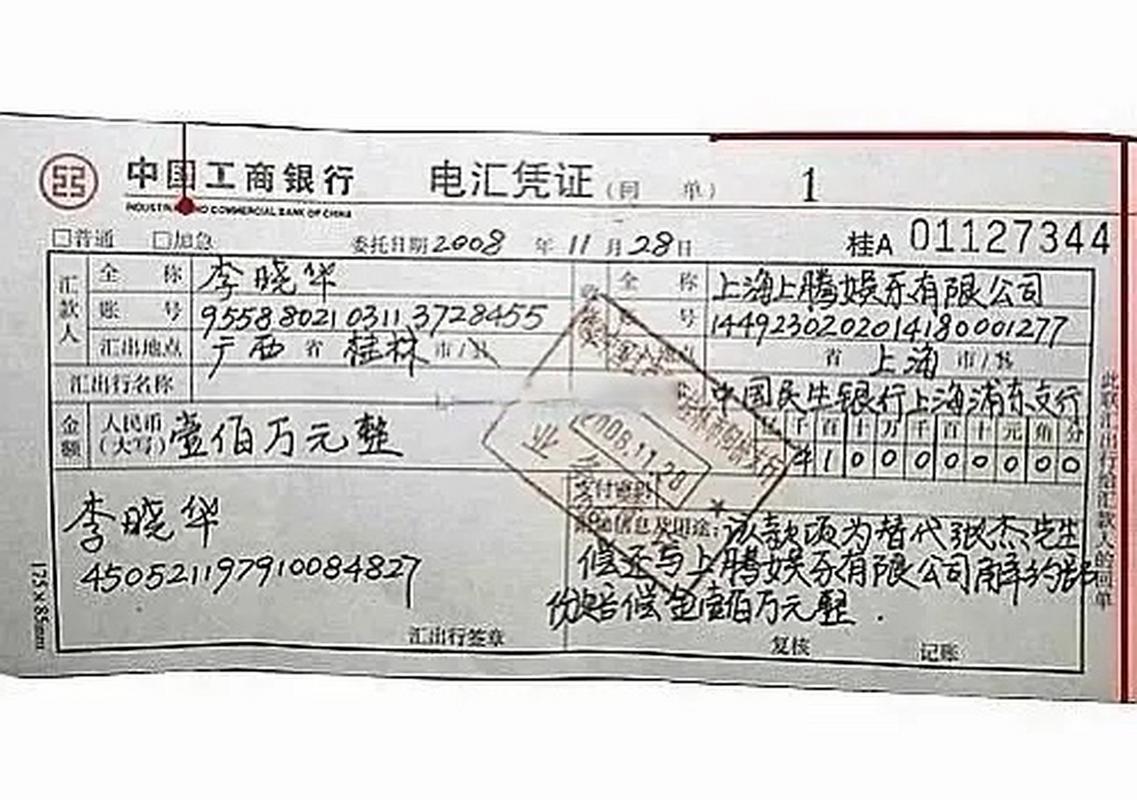 中国工商银行 电汇凭证 (回 单) 1
INDUSTRIAL AND COMMERCIAL BANK OF CHINA
□普通 □加急 委托日期 2008 年 11 月 28 日 桂A 01127344
汇款人 全 称 李晓华 全 称 上海上腾娱乐有限公司
账 号 9558 8021 0311 3728455 号 1449230202014180001277
汇出地点 广西 省 桂林 市/县 省 上海 市/县
汇出行名称 中国民生银行上海浦东支行
金额 人民币(大写) 壹佰万元整 千 百 十 万 千 百 十 元 角 分
¥ 1 0 0 0 0 0 0 0 0
2008.11.28
业
支付密码
李晓华
450521197910084827
信息及用途: 该款项为替代张杰先生
偿还与上腾娱乐有限公司解约部
份赔偿金壹佰万元整.
汇出行签章 复核 记账
此联汇出行给汇款人的回单
175×85mm